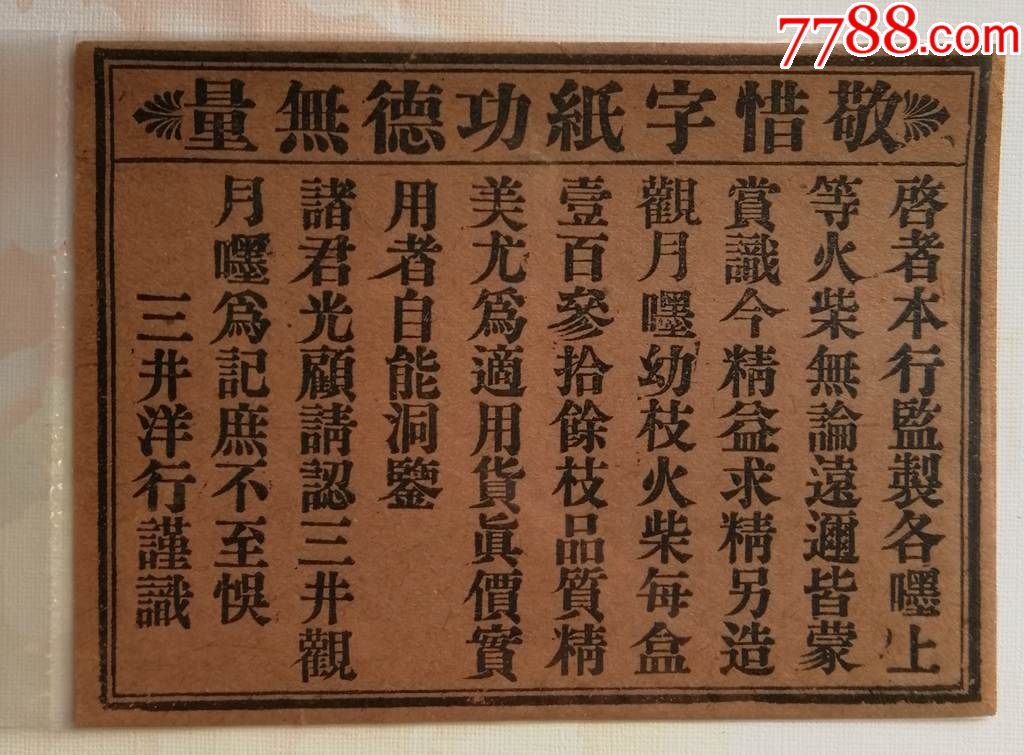 7788.com
敬惜字紙功德無量
啓者本行監製各嘿上
等火柴無論遠邇皆蒙
賞識今精益求精另造
觀月嘿幼枝火柴每盒
壹百參拾餘枝品質精
美尤爲適用貨眞價實
用者自能洞鑒
諸君光顧請認三井觀
月嘿爲記庶不至悞
三井洋行謹識